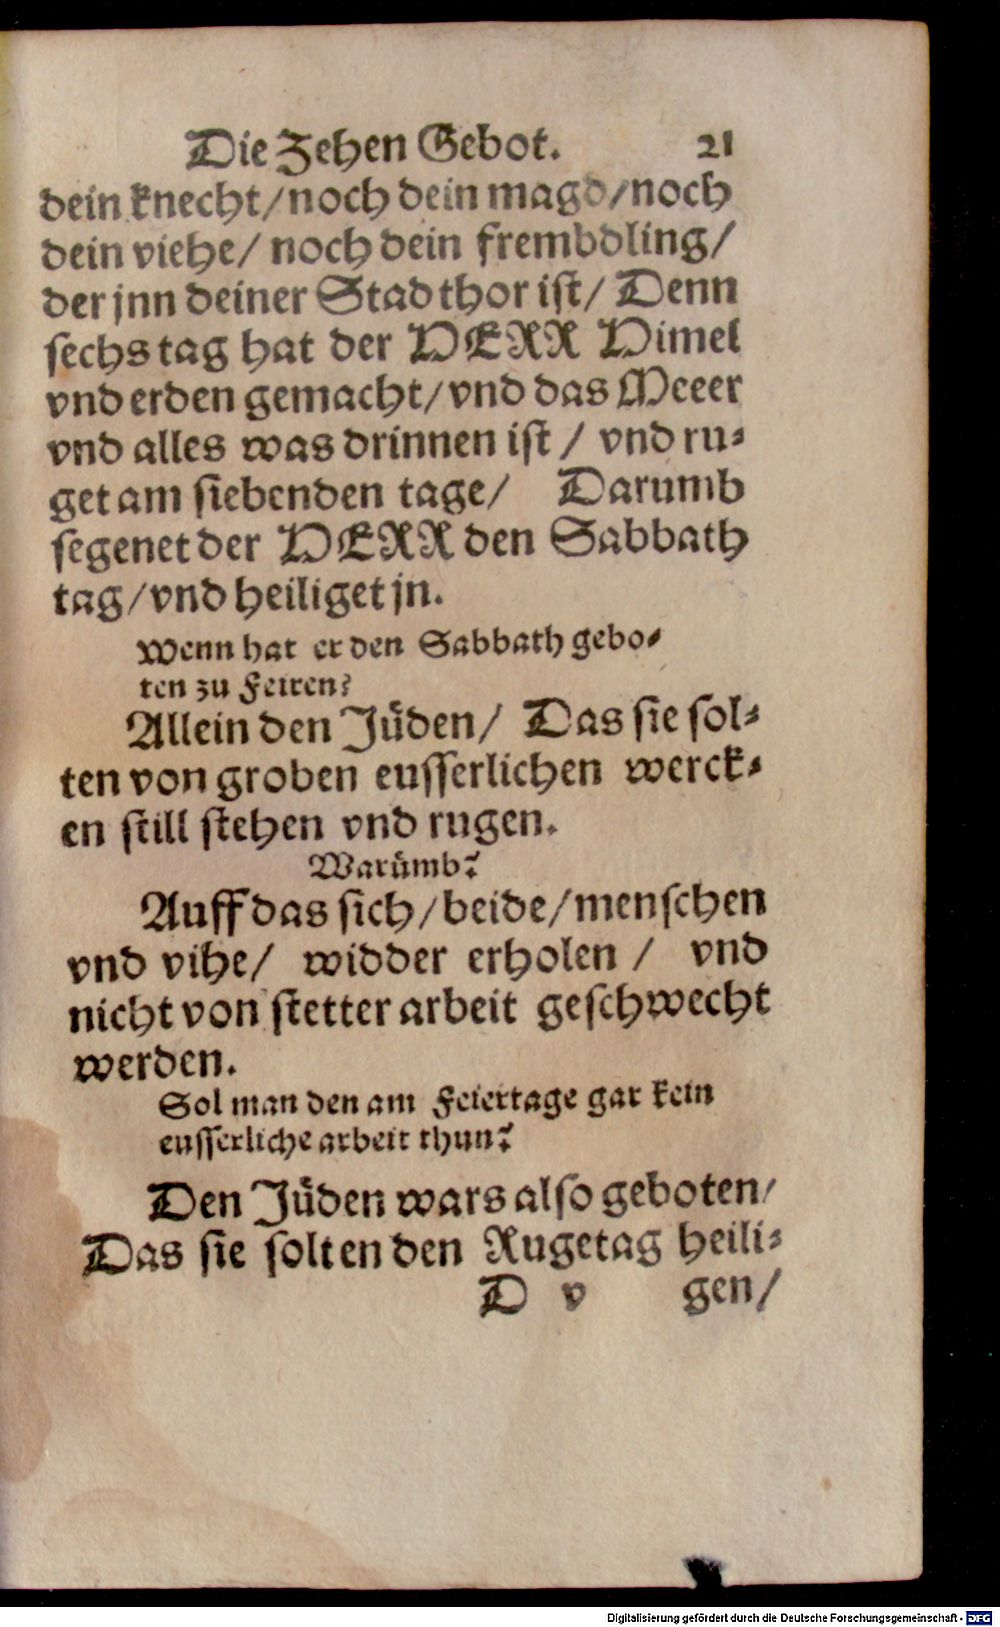 Die Zehen Gebot. 21
dein knecht/noch dein magd/noch
dein viehe/ noch dein frembdling/
der jnn deiner Stad thor ist/ Denn
sechs tag hat der HERR Himel
vnd erden gemacht/vnd das Meeer
vnd alles was drinnen ist / vnd ru⸗
get am siebenden tage/ Darumb
segenet der HERR den Sabbath
tag/vnd heiliget jn.
Wenn hat er den Sabbath gebo⸗
ten zu Feiren?
Allein den Jüden/ Das sie sol⸗
ten von groben eusserlichen werck⸗
en still stehen vnd rugen.
Warümb?
Auff das sich/beide/menschen
vnd vihe/ widder erholen / vnd
nicht von stetter arbeit geschwecht
werden.
Sol man den am Feiertage gar kein
eusserliche arbeit thun?
Den Jüden wars also geboten/
Das sie solten den Rugetag heili⸗
D v gen/
Digitalisierung gefördert durch die Deutsche Forschungsgemeinschaft - DFG